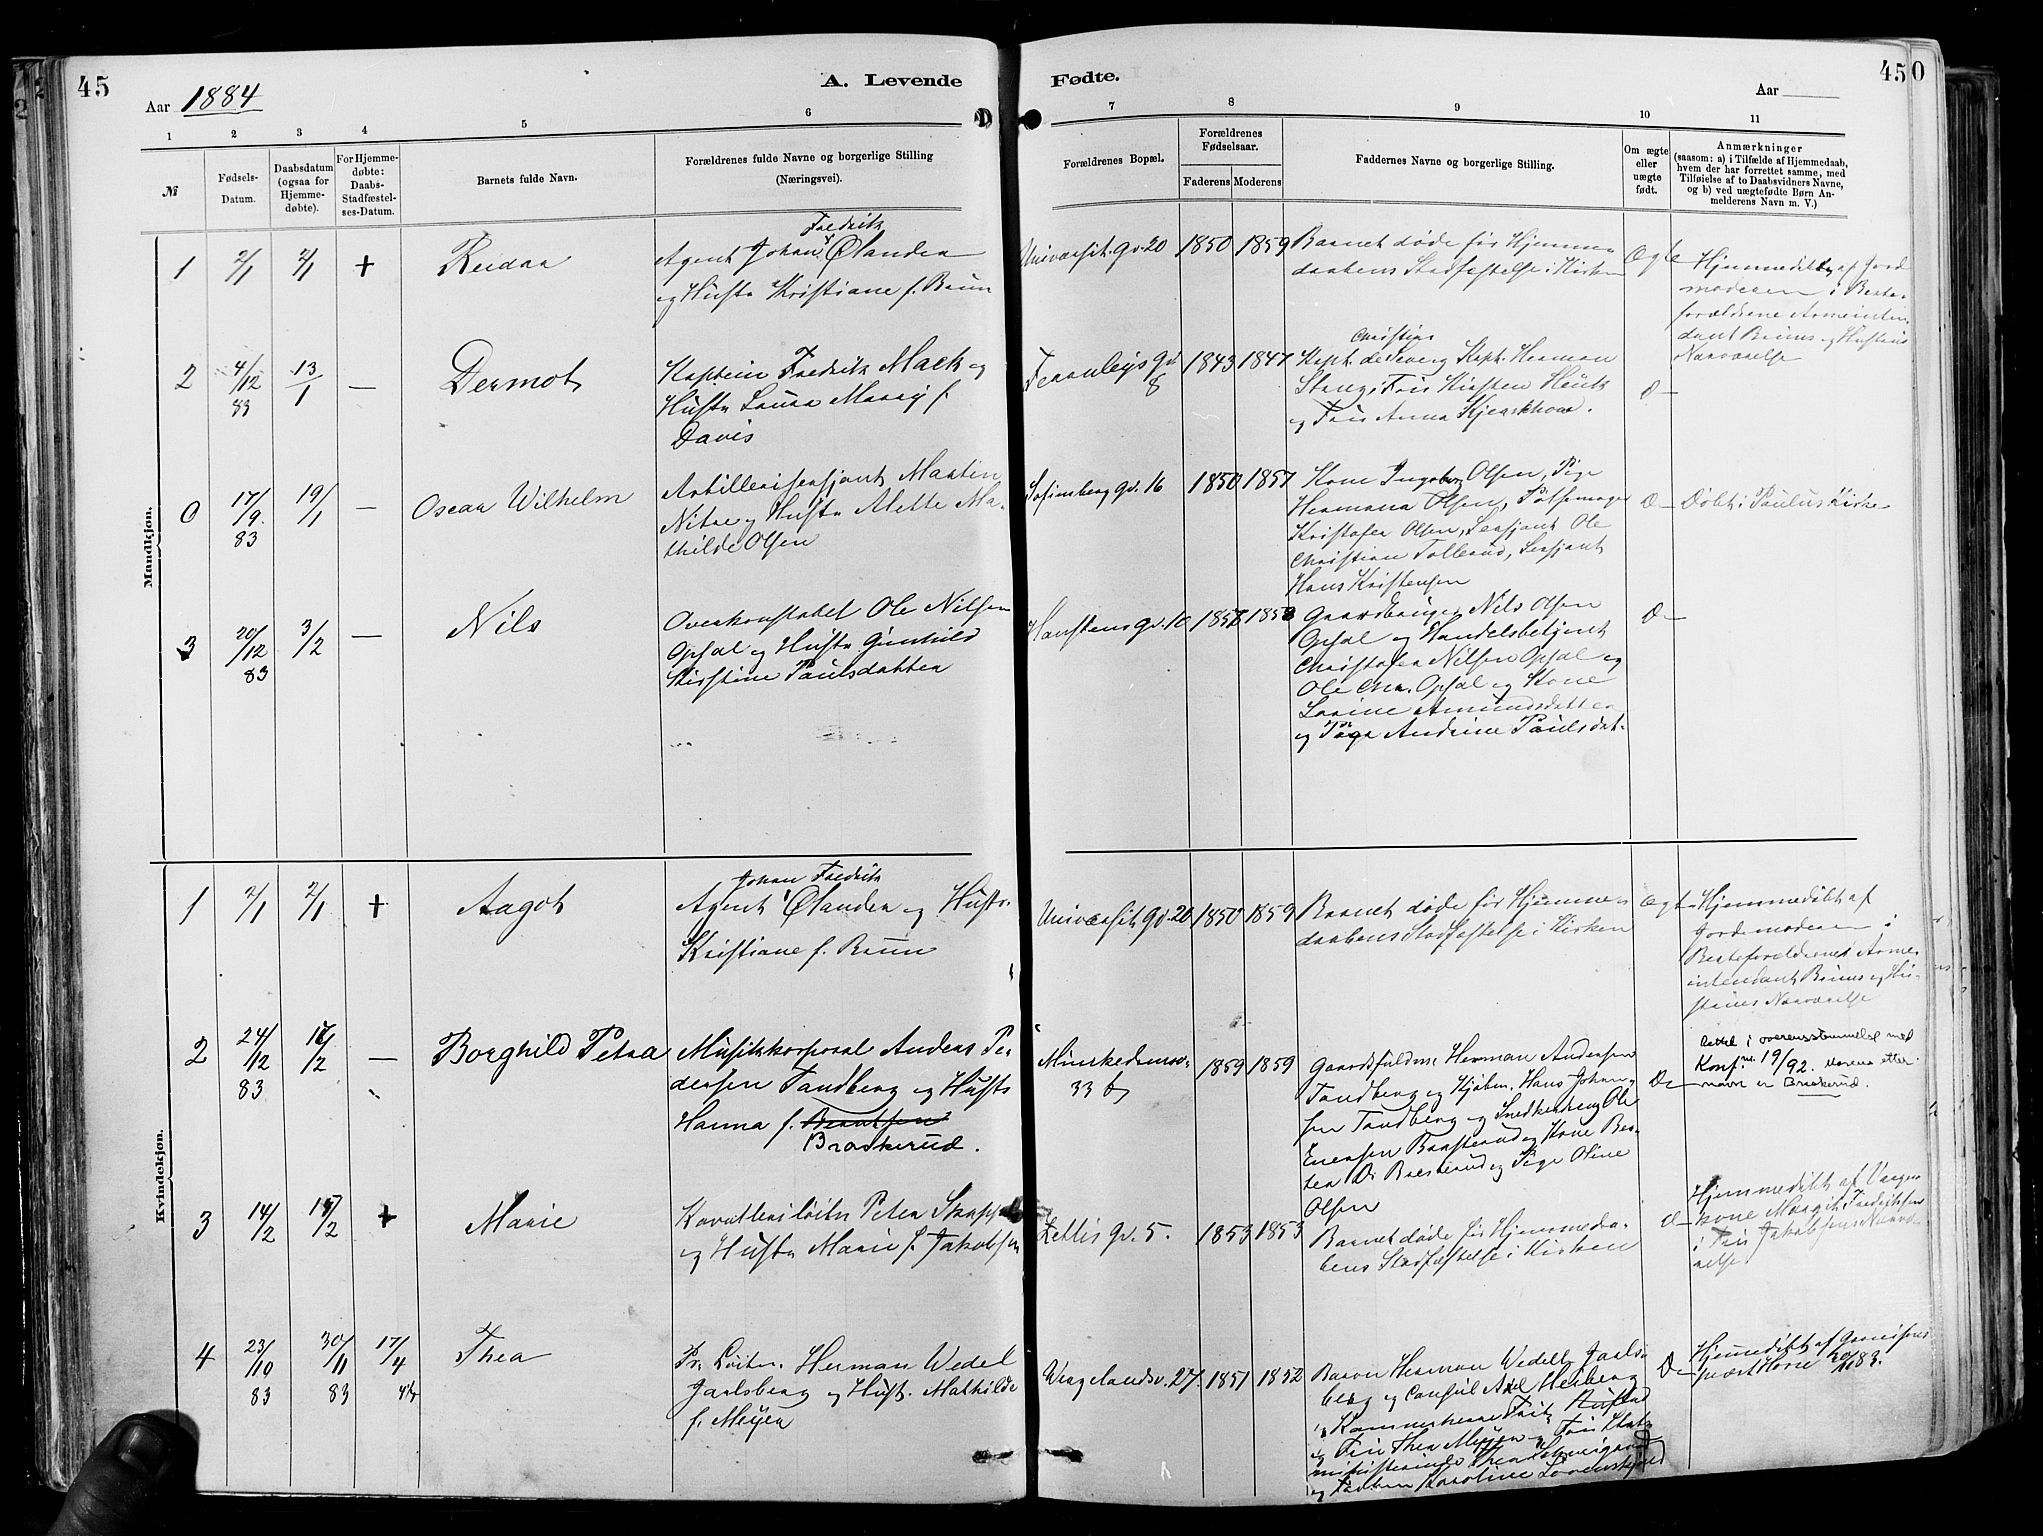 45
A. Levende
Fødte.
450
Aar 1884
Aar
1 2 3 4 5 6 7 8 9 10 11
№
Fødsels-
Datum.
Daabsdatum
(ogsaa for
Hjemme-
døbte).
For Hjemme-
døbte:
Daabs-
Stadfæstel-
ses-Datum.
Barnets fulde Navn.
Forældrenes fulde Navne og borgerlige Stilling
(Næringsvei).
Forældrenes Bopæl.
Forældrenes
Fødselsaar.
Faderens Moderens
Faddernes Navne og borgerlige Stilling.
Om ægte
eller
uægte
født.
Anmærkninger
(saasom: a) i Tilfælde af Hjemmedaab,
hvem der har forrettet samme, med
Tilføielse af to Daabsvidners Navne,
og b) ved uægtefødte Børn An-
melderens Navn m. V.)
Mandkjøn.
1 2/1 2/1 + Reidar
Fredrik
Agent Johan Ølander
og Hustr Kristiane f. Bruun
Universit. gd. 20 1850 1859
Barnet døde før Hjemme-
daabens Stadfæstelse i Kirken
Ægte
Hjemmedøbt af Jord
moderen i Beste-
forældrene Armeinten-
dant Bruuns og Hustrus
Nærværelse
2 4/12 83 13/1 — Dermot
Kaptein Fredrik Mack og
Hustr Laura Mary f.
Davis
Fearnleysgd. 8 1843 1847
Christian
Kapt. Herman
Stang, Frk Kirsten
og Frk Anna
D—
0 17/9 83 19/1 — Oscar Wilhelm
Artillerisersjant Martin
Nitre og Hustr Alette Ma-
thilde Olsen
Sofienberg gd. 16 1850 1857
Kone Ingeborg Olsen, Pige
Hermana Olsen, Pølsemager
Kristofer Olsen, Sersjant Ole
Christian Tollerud, Sersjant
Hans Kristensen
D— Døbt i Paulus Kirke
3 20/12 83 3/2 — Nils
Overkonstabel Ole Nilsen
Opsal og Hustr Gunhild
Kirstine Paulsdatter
Hanstensgd. 10
Gaardbruger Nils Olsen
Opsal og Handelsbetjent
Christofer Nilsen Opsal og
Ole Chr. Opsal og Kone
Lovine Amundsdatter
og Pige Andrine Paulsdat-
D—
Kvindekjøn.
1 2/1 2/1 + Aagot
Johan Fredrik
Agent Ølander og Hustr.
Kristiane f. Bruun
Universit. gd. 20 1850 1859
Barnet døde før Hjemme-
daabens Stadfæstelse i Kirken
Ægt
Hjemmedøbt af
Jordemoderen i
Besteforeldrenes Arme-
intendant Bruuns og Hu-
struens Nærværelse
2 24/12 83 17/2 — Borghild Petra
Musikkorporal Anders Pe-
dersen Tandberg og Hustr
Hanna f. Berntsen
Braskerud.
Munkedamsv. 33 b 1859 1859
Gaardsfuldm. Herman Andersen
Tandberg og Kjøbm. Hans Johan-
sen Tandberg og Snedkersvend Ole
Evensen Braskerud og Kone Ber-
tea D. Braskerud og Pige Oline
Olsen
D—
Rettet i overensstemmelse med
Konf. nr. 19/92. Morens efter-
navn er Braskerud.
3 14/2 15/2 + Marie
Kavalleriløitn Peter Skappel
og Hustr Marie f. Jakobsen
Zetlis gd. 5. 1853 1853
Barnet døde før Hjemmeda-
bens Stadfæstelse i Kirken
D—
Hjemmedøbt af Vaage-
kone Margit Fredriksen
i Fru Jakobsens Nærvæ-
relse
4 23/10 83 30/11 83 17/4 Thea
Pr. Løitn. Herman Wedel
Jarlsberg og Hust. Mathilde
f. Meyer
Wergelandsv. 27. 1851 1852
Baron Herman Wedell Jarls-
berg og Consul Axel Heiberg
og Kammerherre Fritz Rustad
og Fru Thea Meyer og Fru Stats-
minister Thea Schweigaard
og Frøken Karoline Løvenskjold
D—
Hjemmedøbt af Garnisons
præst Horn 30/11 83.